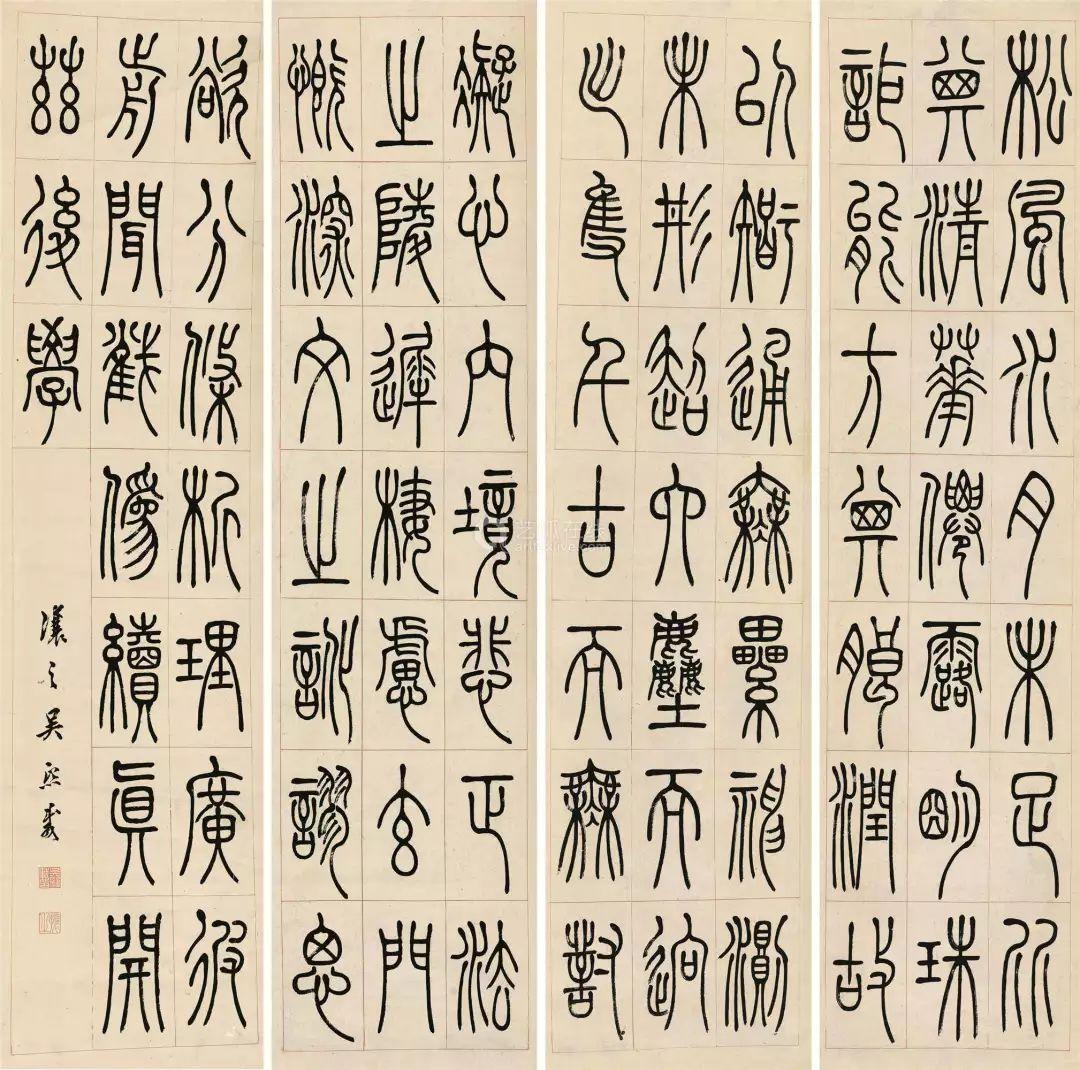 松風水月未足比
其清華僊露明珠
詎能方其朖潤故
以智通無累神測
未形超六塵而迥
出隻千古而無對
凝心內境悲正法
之陵遲棲慮玄門
慨深文之訛謬思
欲分條析理廣彼
前聞截偽續真開
茲後學
讓之吳熙載
艺狐在线
artfoxlive.com